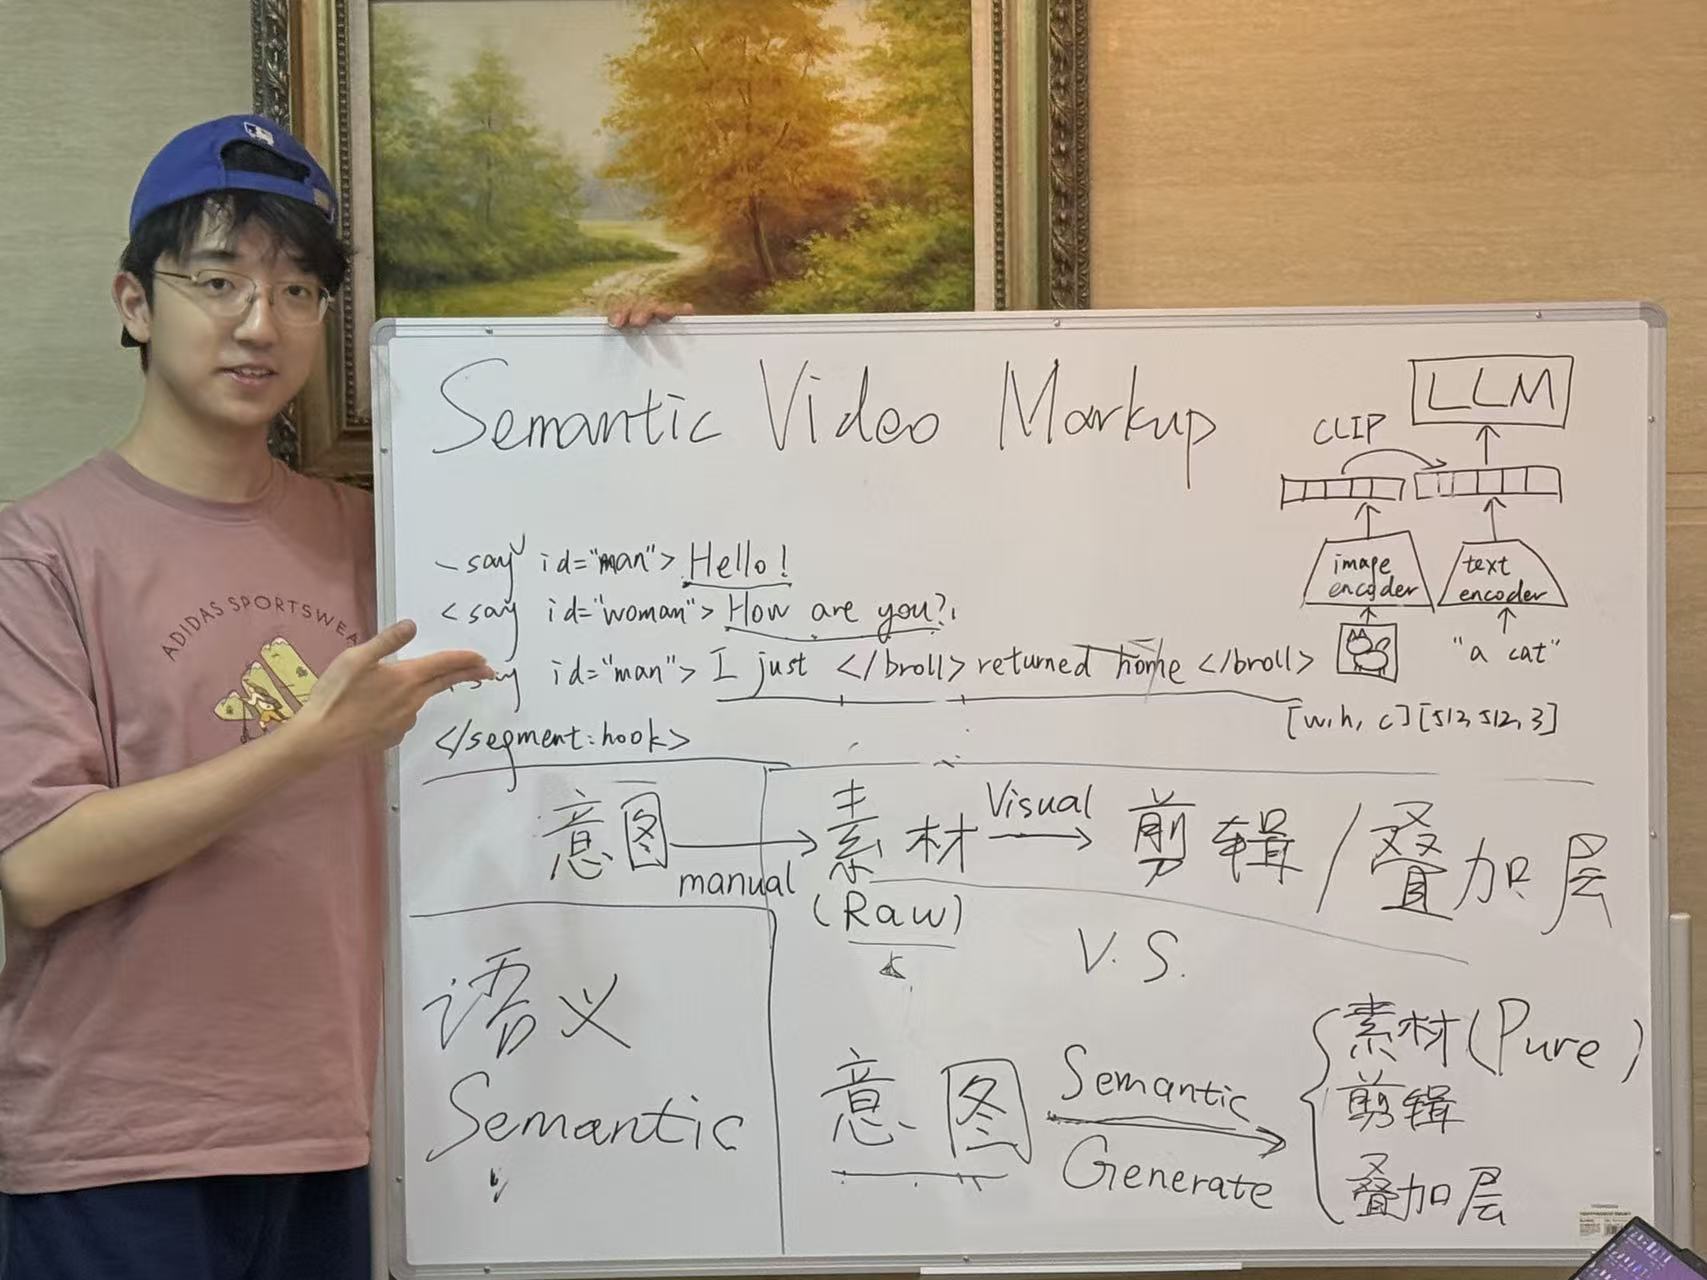 ADIDAS SPORTSWEA
Semantic Video Markup
LLM
CLIP
image encoder
text encoder
"a cat"
[w,h,c] [512,512,3]
say id="man"> Hello!
<say id="woman"> How are you?
say id="man"> I just </broll> returned home </broll>
</segment:hook>
意图
manual
素材
(Raw)
Visual
剪辑/叠加层
V.S.
语义
Semantic
意图
Semantic
Generate
素材(Pure)
剪辑
叠加层